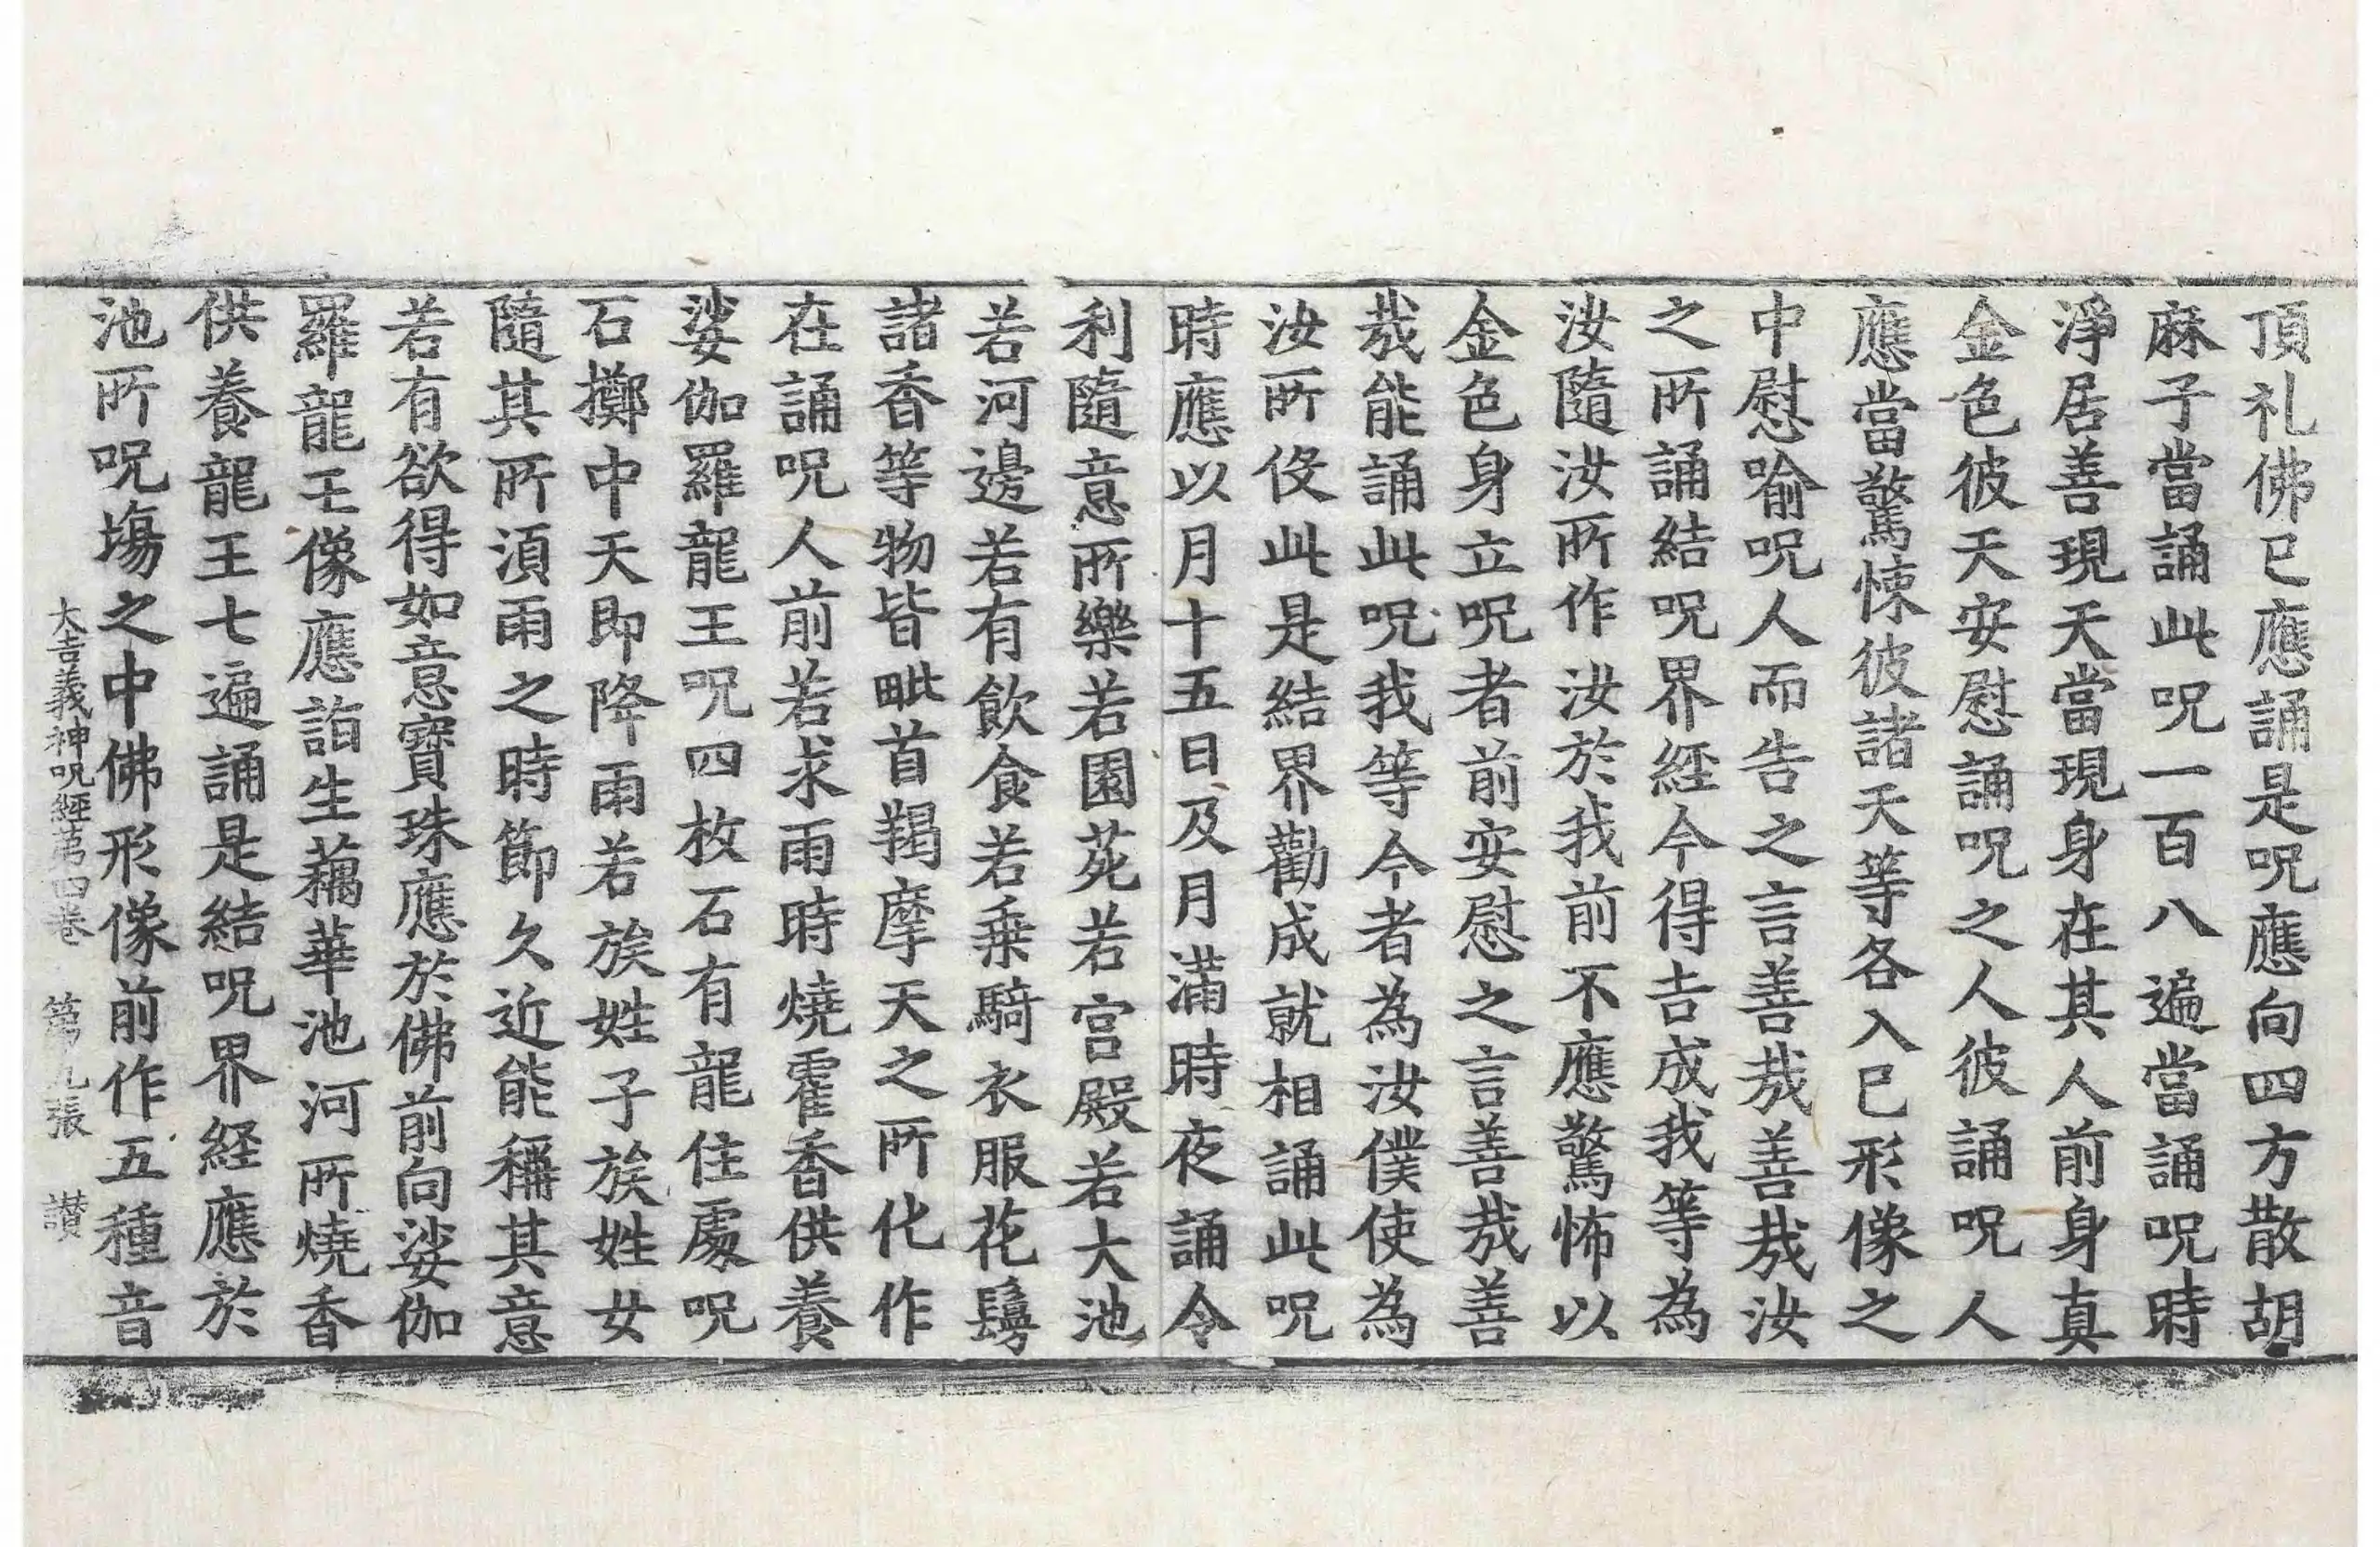 頂礼佛已應誦是呪應向四方散胡
麻子當誦此呪一百八遍當誦呪時
淨居善現天當現身在其人前身真
金色彼天安慰誦呪之人彼誦呪人
應當驚悚彼諸天等各入已形像之
中慰喻呪人而告之言善哉善哉汝
之所誦結呪界經今得吉成我等為
汝隨汝所作汝於我前不應驚怖以
金色身立呪者前安慰之言善哉善
哉能誦此呪我等今者為汝僕使為
汝所伇此是結界勸成就相誦此呪
時應以月十五日及月滿時夜誦令
利隨意所樂若園苑若宮殿若大池
若河邊若有飲食若乗騎衣服花鬘
諸香等物皆毗首羯摩天之所化作
在誦呪人前若求雨時燒霍香供養
娑伽羅龍王呪四枚石有龍住處呪
石擲中天即降雨若族姓子族姓女
隨其所湏雨之時節久近能稱其意
若有欲得如意寶珠應於佛前向娑伽
羅龍王像應詣生藕華池河所燒香
供養龍王七遍誦是結呪界経應於
池所呪塲之中佛形像前作五種音
大吉義神呪經苐四卷　第九張　讃